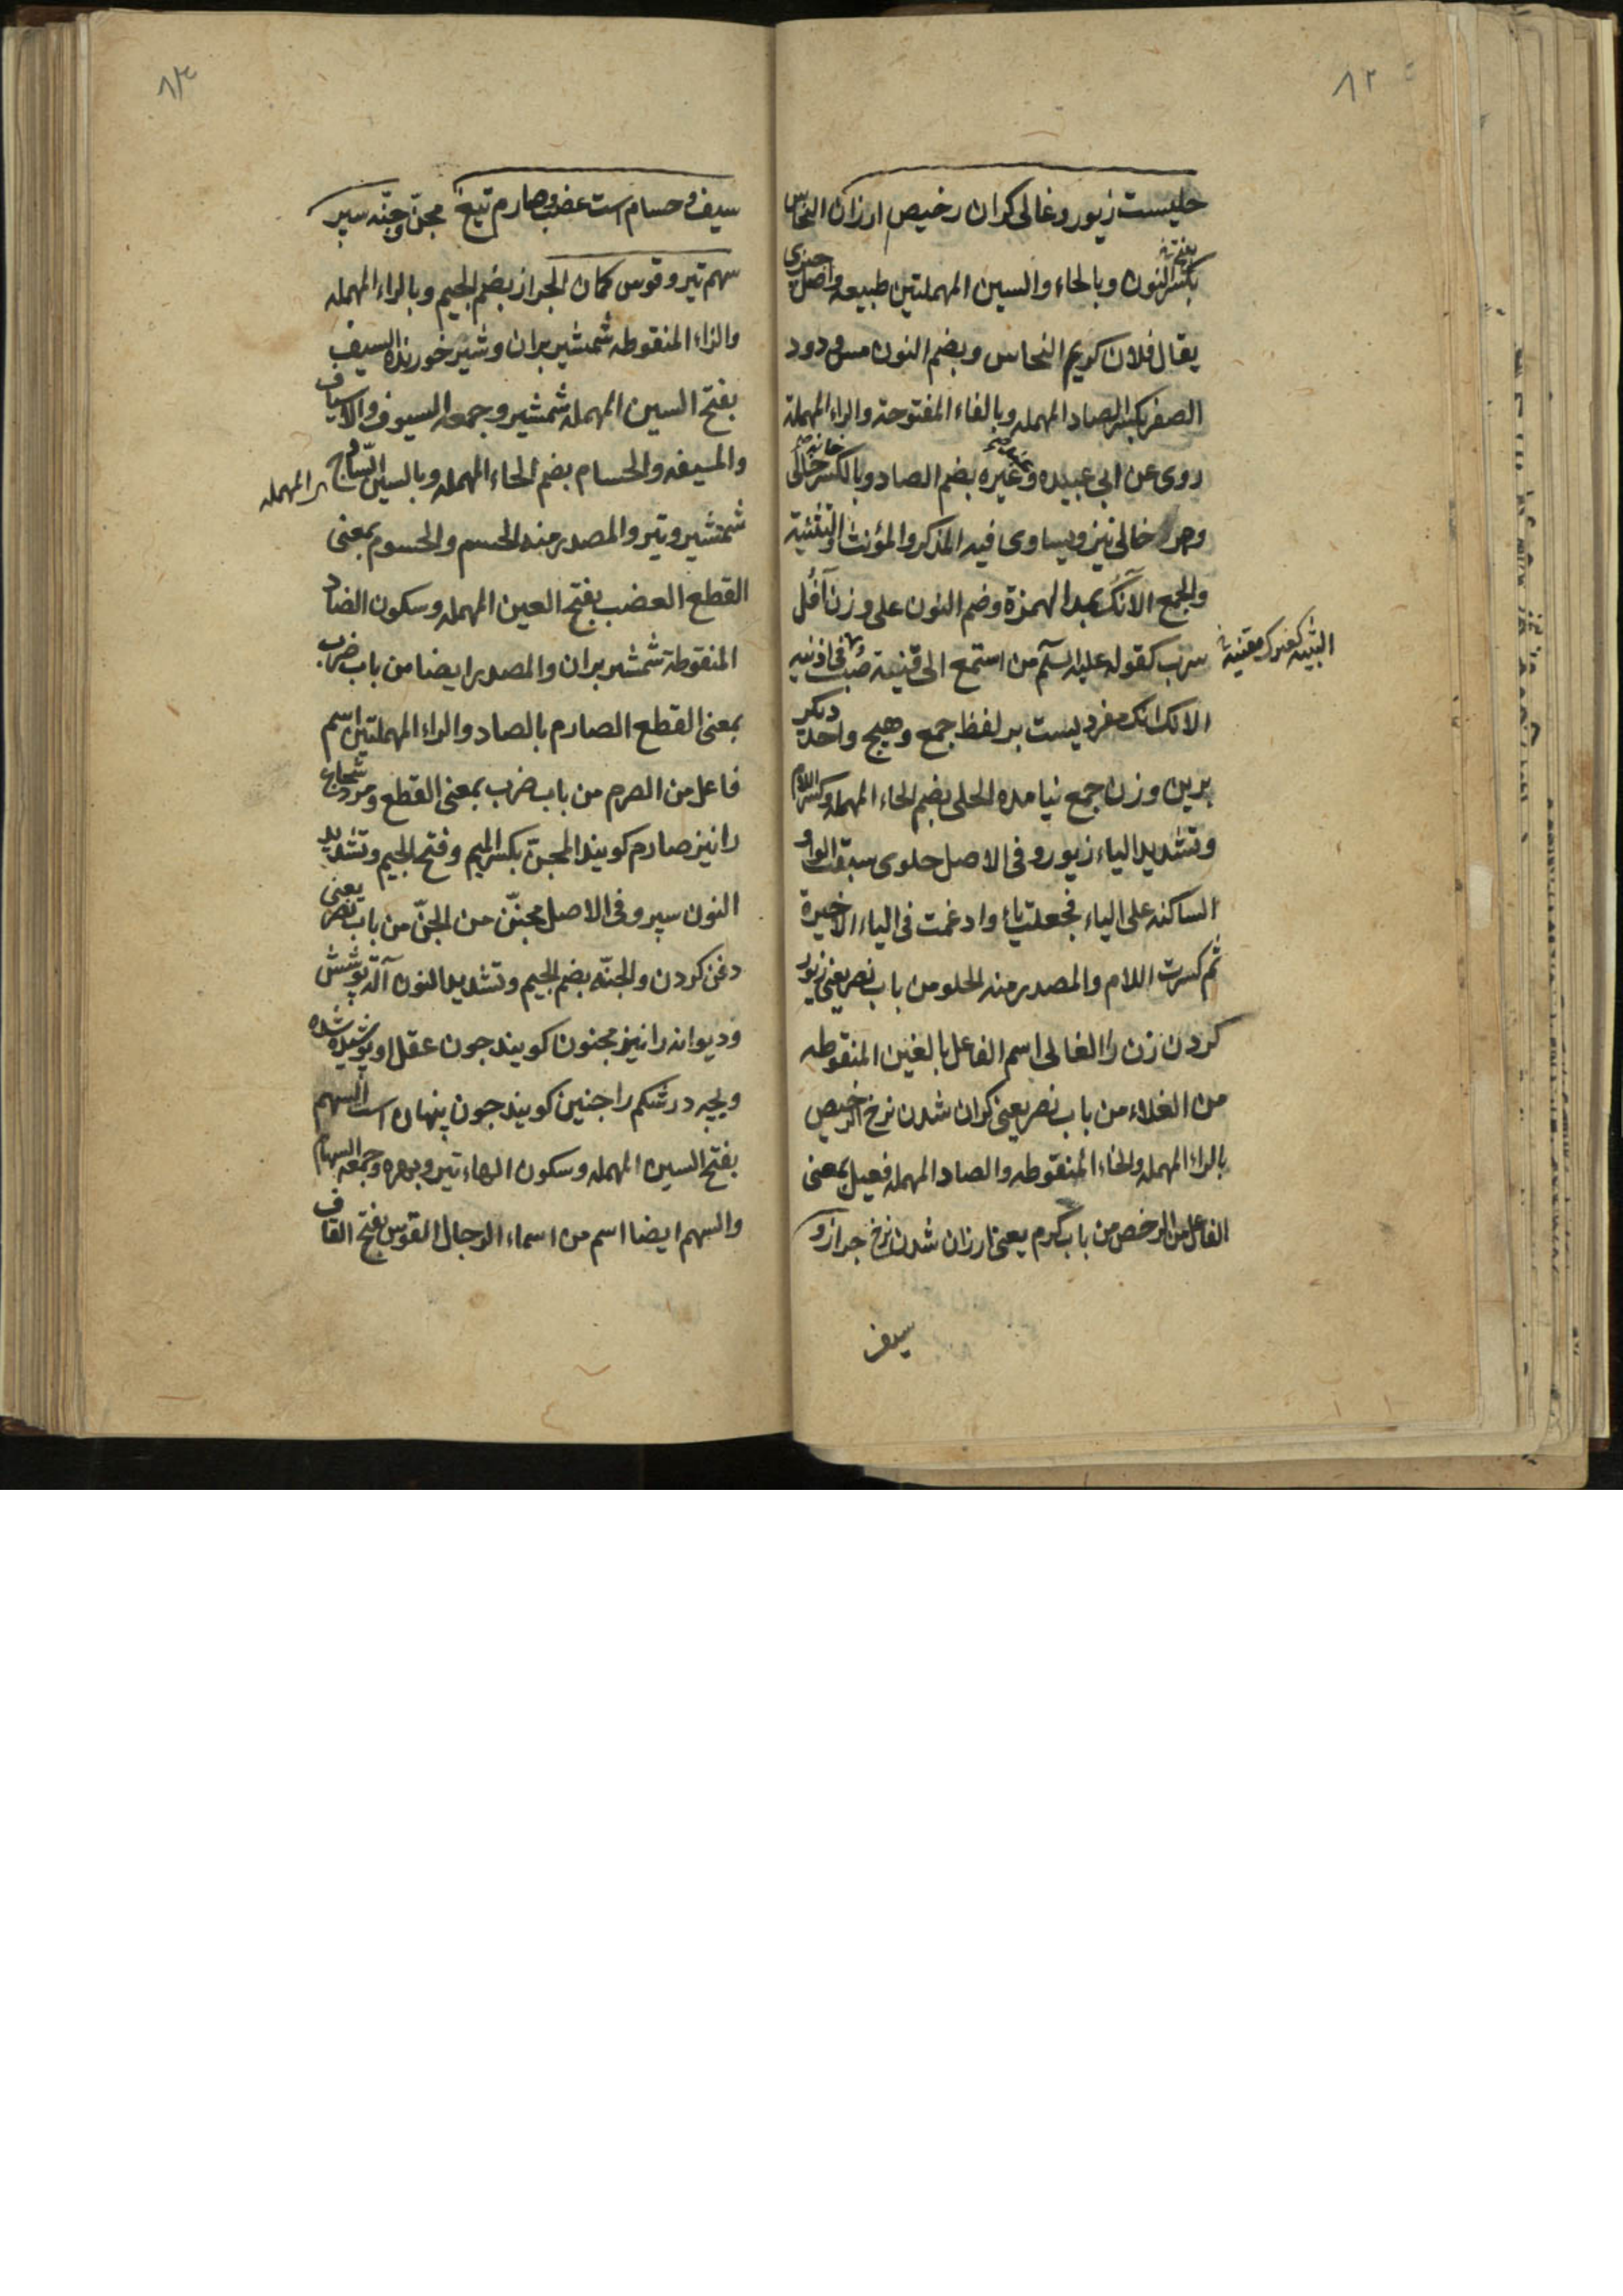 ٨٢
حلیست زیور و غالی کران رخیص ارزان النحاس
بکسر النون و بالحاء والسین المهملتین طبیعه و اصل چیزی
یقال فلان کریم النحاس و بضم النون مس و دود
الصفر بکسر الصاد المهمله و بالفاء المفتوحة والراء المهملة
روی عن ابی عبیده و غیره بضم الصاد و بالکسر خالی
خالی نیز و یساوی فیه المذکر والمؤنث والتثنیة
والجمع الآنک بمد الهمزة و ضم النون علی وزن آفل
سرب کقوله علیه السلم من استمع الی قینة صب فی اذنیه
الآنک آنک مفردیست بر لفظ جمع و هیچ واحد دیکر
برین وزن جمع نیامده الحلی بضم الحاء المهمله و کسر اللام
و تشدید الیاء زیور و فی الاصل حلوی سبقت الواو
الساکنه علی الیاء فجعلت یاء و ادغمت فی الیاء الاخیرة
ثم کسرت اللام والمصدر منه الحلو من باب نصر یعنی زیور
کردن زن را الغالی اسم الفاعل بالغین المنقوطه
من الغلاء من باب نصر یعنی کران شدن نرخ الرخیص
بالراء المهمله والخاء المنقوطه والصاد المهمله فعیل بمعنی
الفاعل من الرخص من باب کرم یعنی ارزان شدن نرخ جراز و
سیف
البثینه
٨٣
سیف و حسام است عضب و صارم تیغ مجن و جنه سپر
سهم تیر و قوس کمان الجراز بضم الجیم و بالراء المهمله
والزاء المنقوطه شمشیر بران و شیر خورنده السیف
بفتح السین المهمله شمشیر و جمعه السیوف والاسیاف
والمسیفه والحسام بضم الحاء المهمله و بالسین
المهمله
شمشیر و تیر والمصدر منه الحسم والحسوم بمعنی
القطع العضب بفتح العین المهمله و سکون الضاد
المنقوطة شمشیر بران والمصدر ایضا من باب ضرب
بمعنی القطع الصارم بالصاد والراء المهملتین اسم
فاعل من الصرم من باب ضرب بمعنی القطع و مرد شجاع
را نیز صارم کویند المجن بکسر المیم و فتح الجیم و تشدید
النون سپر و فی الاصل مجنّن من الجنّ من باب نصر یعنی
دفن کردن والجنّه بضم الجیم و تشدید النون آلة پوشش
و دیوانه را نیز مجنون کویند جون عقل او پوشیده شده
و بچه در شکم را جنین کویند جون پنهان است السهم
بفتح السین المهمله و سکون الهاء تیر و بهره و جمعه السهام
والسهم ایضا اسم من اسماء الرجال القوس بفتح القاف